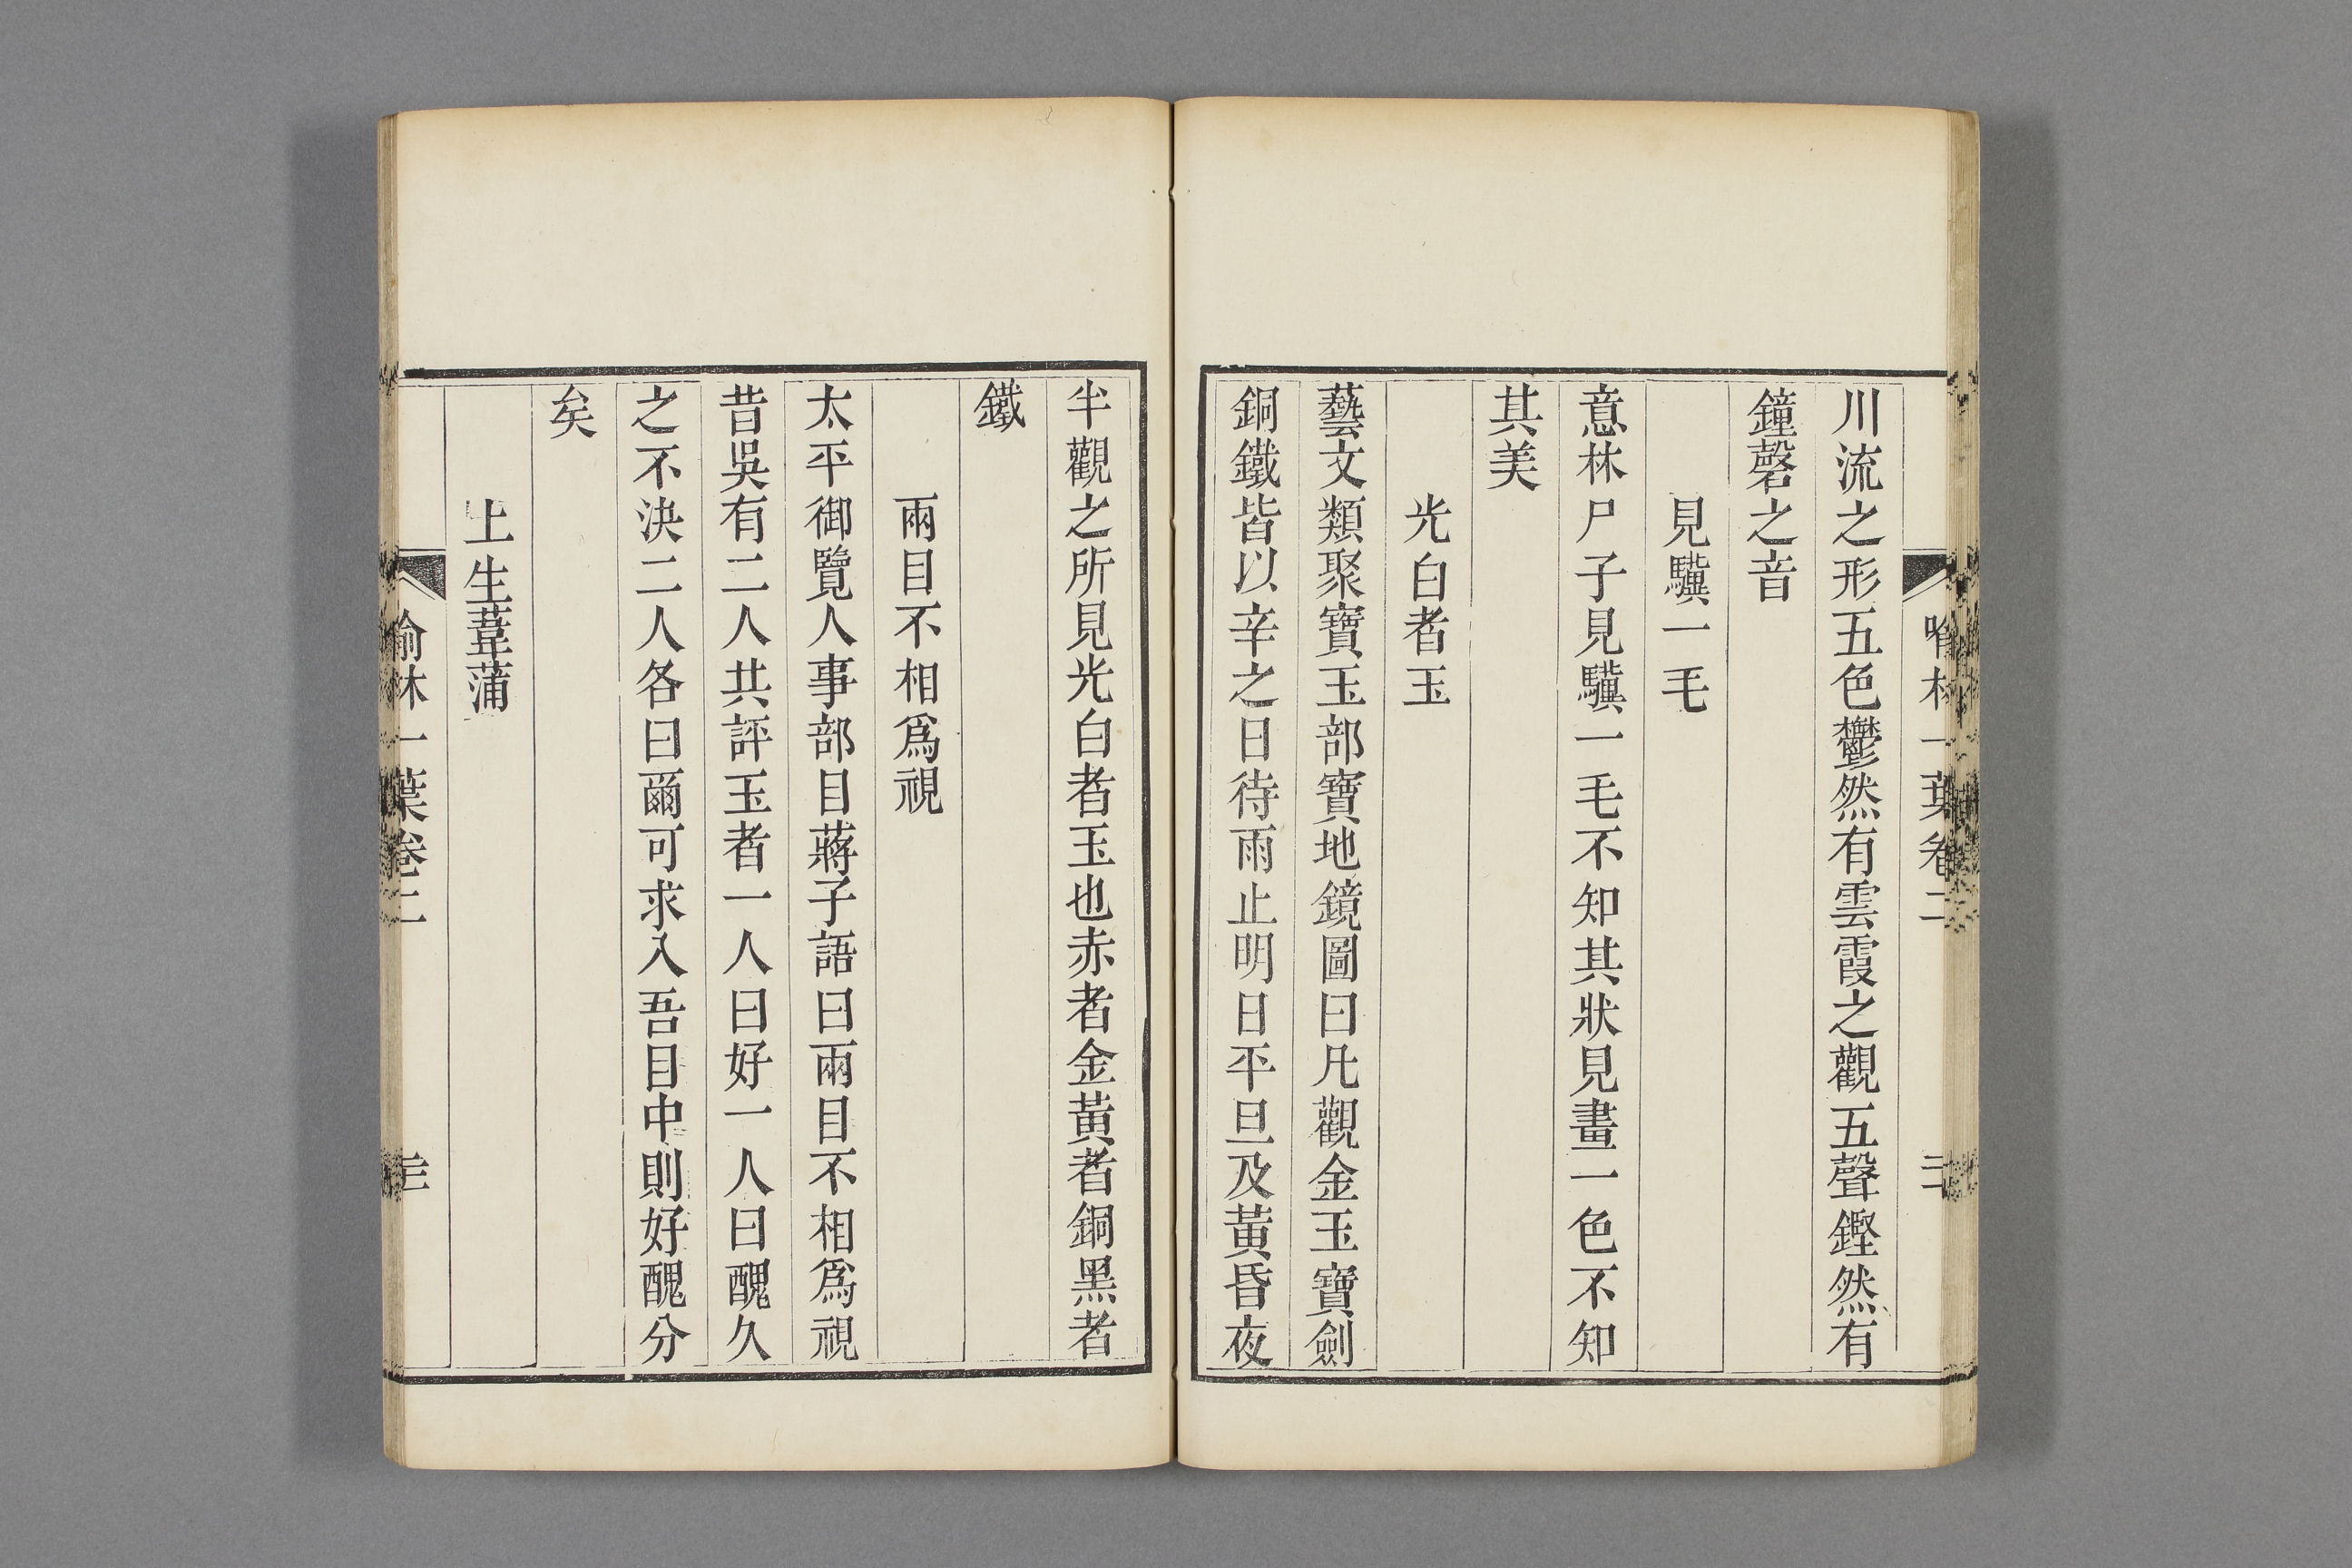 川流之形五色鬱然有雲霞之觀五聲鏗然有
鐘磬之音
見驥一毛
意林尸子見驥一毛不知其狀見畫一色不知
其美
光白者玉
藝文類聚寶玉部寶地鏡圖曰凡觀金玉寶劍
銅鐵皆以辛之日待雨止明日平旦及黃昏夜
半觀之所見光白者玉也赤者金黃者銅黑者
鐵
兩目不相爲視
太平御覽人事部目蔣子語曰兩目不相爲視
昔吳有二人共評玉者一人曰好一人曰醜久
之不決二人各曰爾可求入吾目中則好醜分
矣
土生葦蒲
喻林一葉卷二